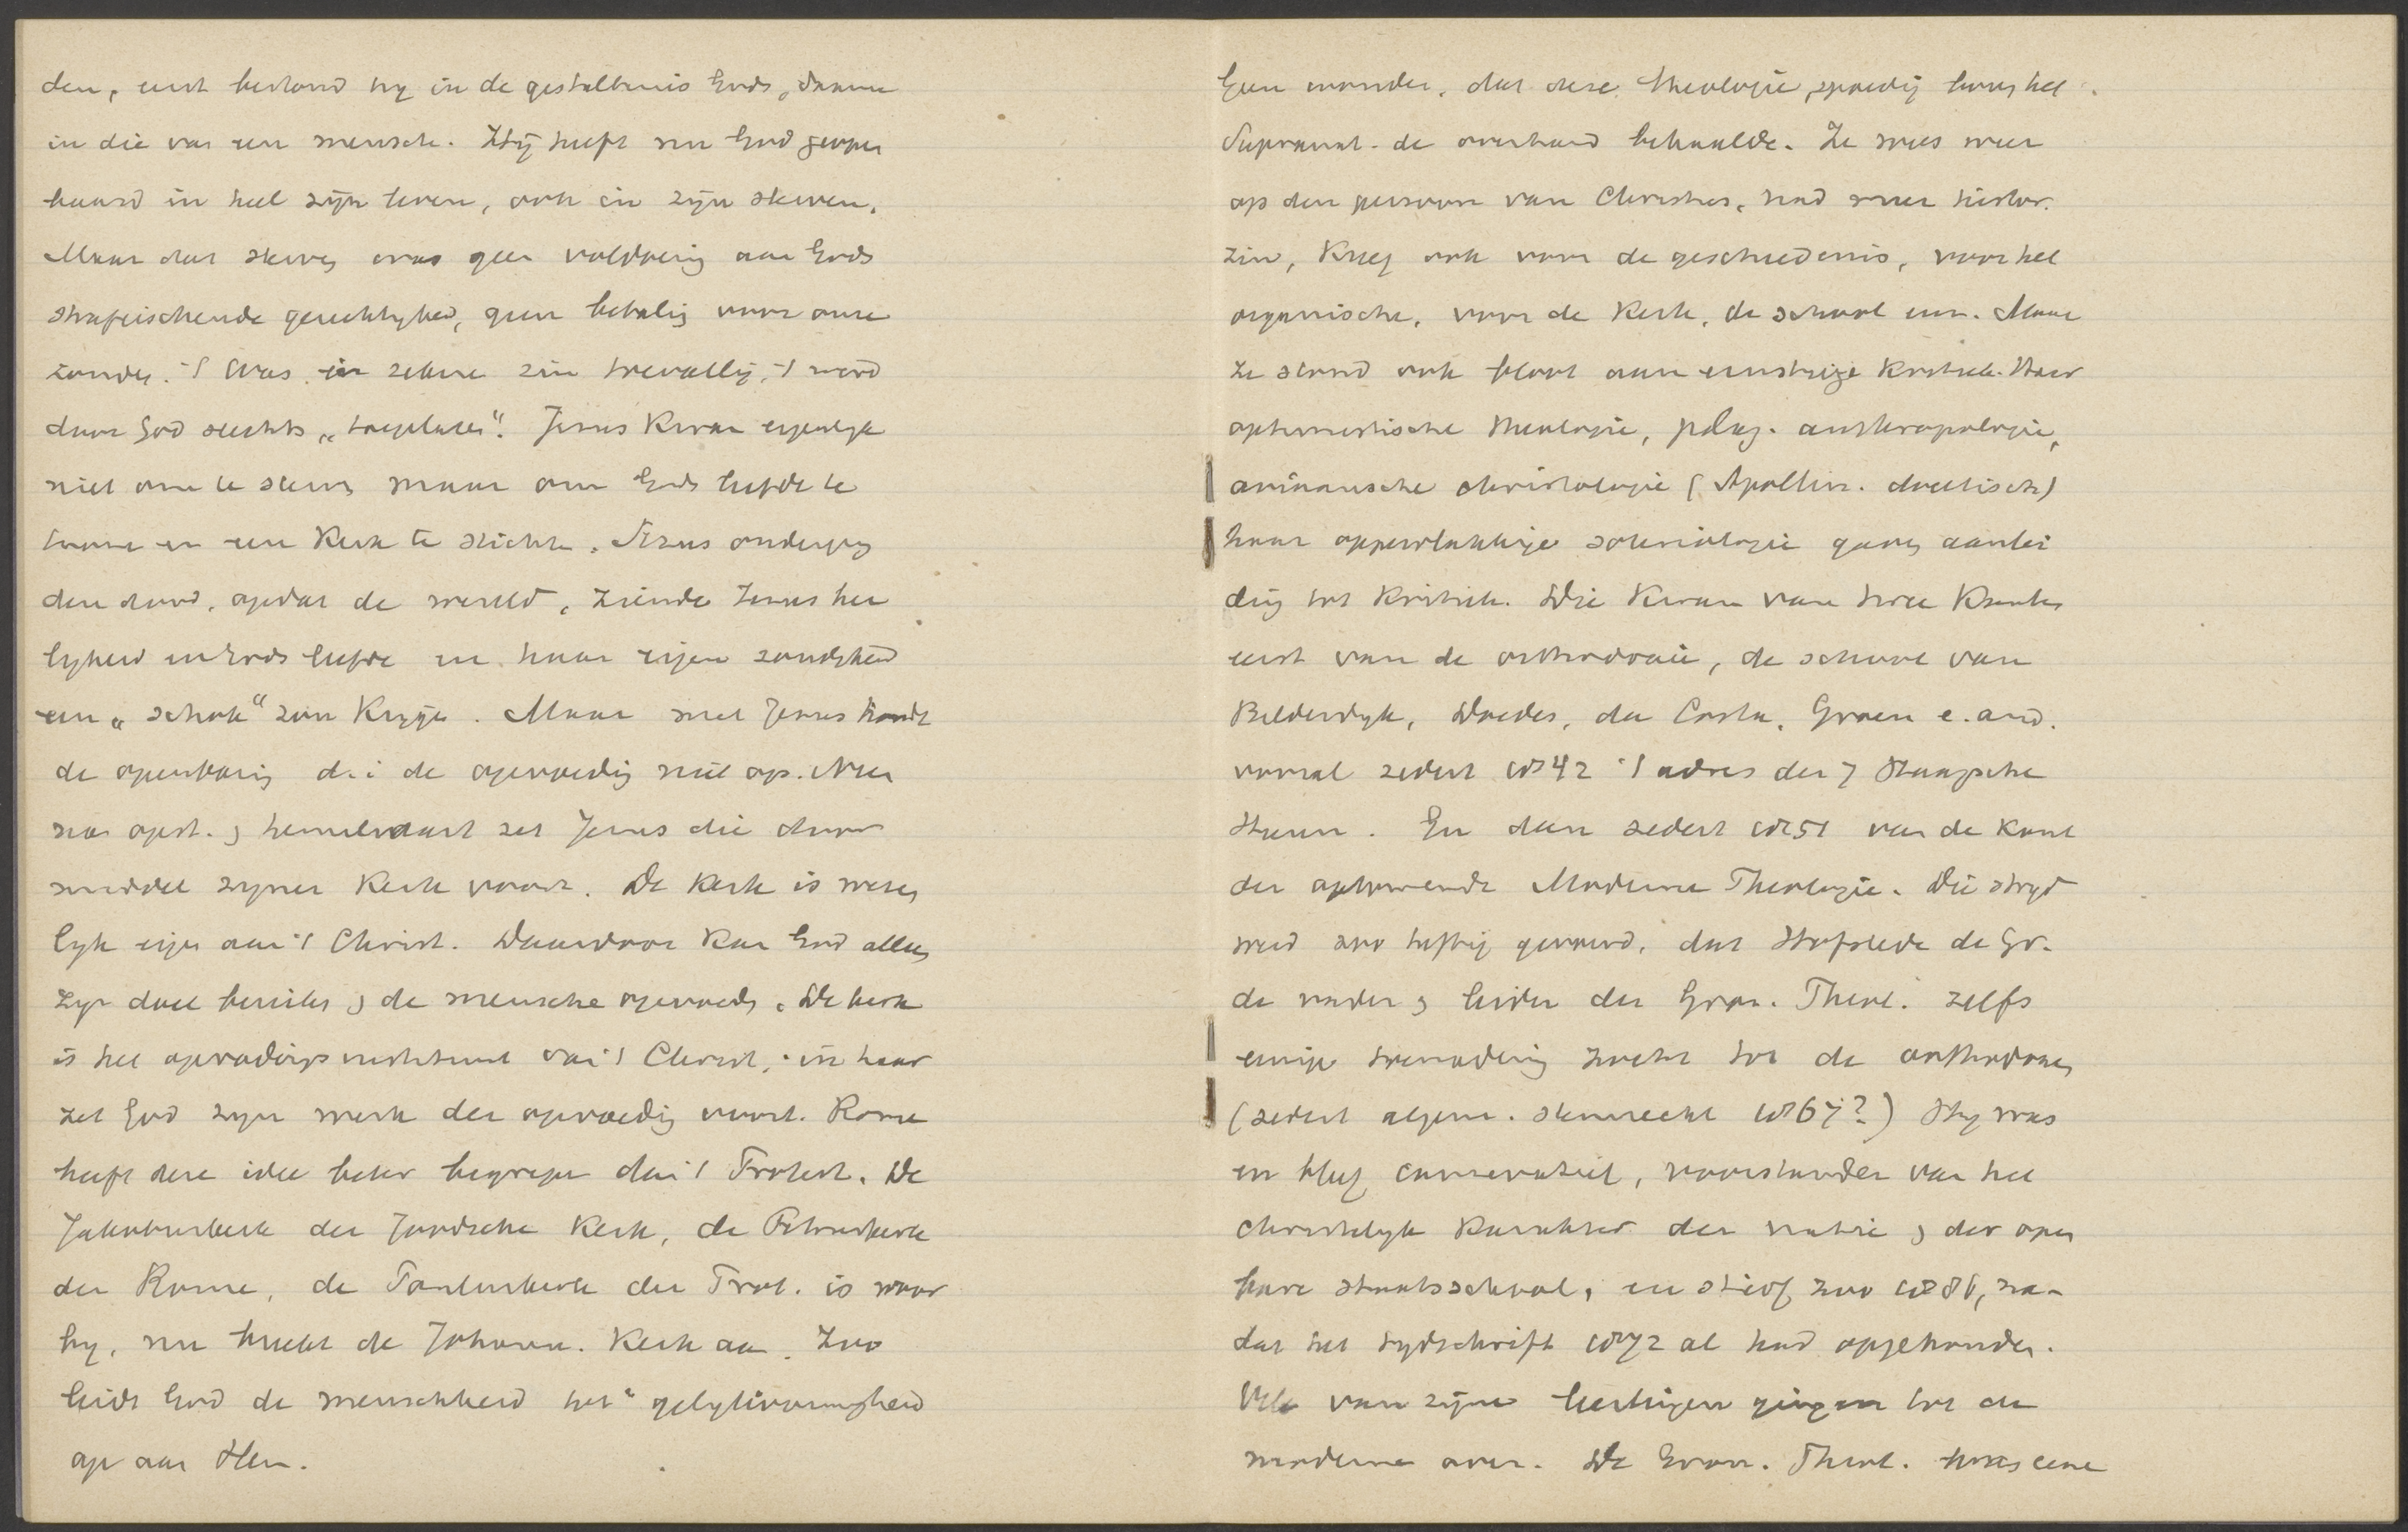 den, eerst bestond hij in de gestaltenis Gods, daarna
in die van een mensch. Hij heeft nu God geopen
baard in heel zijn leven, ook in zijn sterven.
Maar dat sterven was geen voldoening aan Gods
strafeischende gerechtigheid, geen betaling voor onze
zonden. 't Was in zekere zin toevallig, 't werd
door God slechts „toegelaten". Jezus kwam eigenlijk
niet om te sterven maar om Gods liefde te
toonen en een Kerk te stichten. Jezus onderging
den dood, opdat de wereld, ziende Jezus hei
ligheid en Gods liefde en haar eigen zondigheid
een „schok" zou krijgen. Maar met Jezus houdt
de openbaring d. i. de opvoeding niet op. Neen
na opst. & hemelvaart zet Jezus die door
middel zijner Kerk voort. De Kerk is wezen
lijk eigen aan 't Christ. Daardoor kan God alleen
zijn doel bereiken & de menschen opvoeden. De kerk
is het opvoedingsinstituut van 't Christ., in haar
zet God zijn werk der opvoeding voort. Rome
heeft deze idee beter begrepen dan 't Protest. De
Jakobuskerk der Joodsche Kerk, de Petruskerk
der Rome, de Pauluskerk der Prot. is voor
bij, nu breekt de Johann. Kerk aan. Zoo
leidt God de menschheid tot gelijkvormigheid
op aan Hem.
Geen wonder, dat deze theologie spoedig boven het
Supranat. de overhand behaalde. Ze wees weer
op den persoon van Christus, had meer histor.
zin, kreeg ook voor de geschiedenis, voor het
organische, voor de Kerk, de school enz. Maar
ze stond ook bloot aan ernstige Kritiek. Haar
optimistische theologie, pelag. anthropologie,
ariaansche christologie (Apollin. docetisch)
haar oppervlakkige soteriologie gaven aanlei
ding tot Kritiek. Die kwam van twee Kanten
eerst van de orthodoxie, de school van
Bilderdijk, Doedes, da Costa, Groen e. and.
vooral sedert 1842 't adres der 7 Haagsche
Heeren. En dan sedert 1851 van de kant
der opkomende Moderne Theologie. Die strijd
werd zoo heftig gevoerd, dat Hofstede de Gr.
de vader & leider der Gron. Theol. zelfs
eenige toenadering zocht tot de orthodoxen
(sedert algem. stemrecht 1867?) Hij was
en bleef conservatief, voorstander van het
christelijk karakter der natie & der open
bare staatsschool, en stierf zoo 1886, na-
dat het tijdschrift 1872 al had opgehouden.
Vele van zijne leerlingen gingen tot de
moderne over. De Gron. Theol. was eene